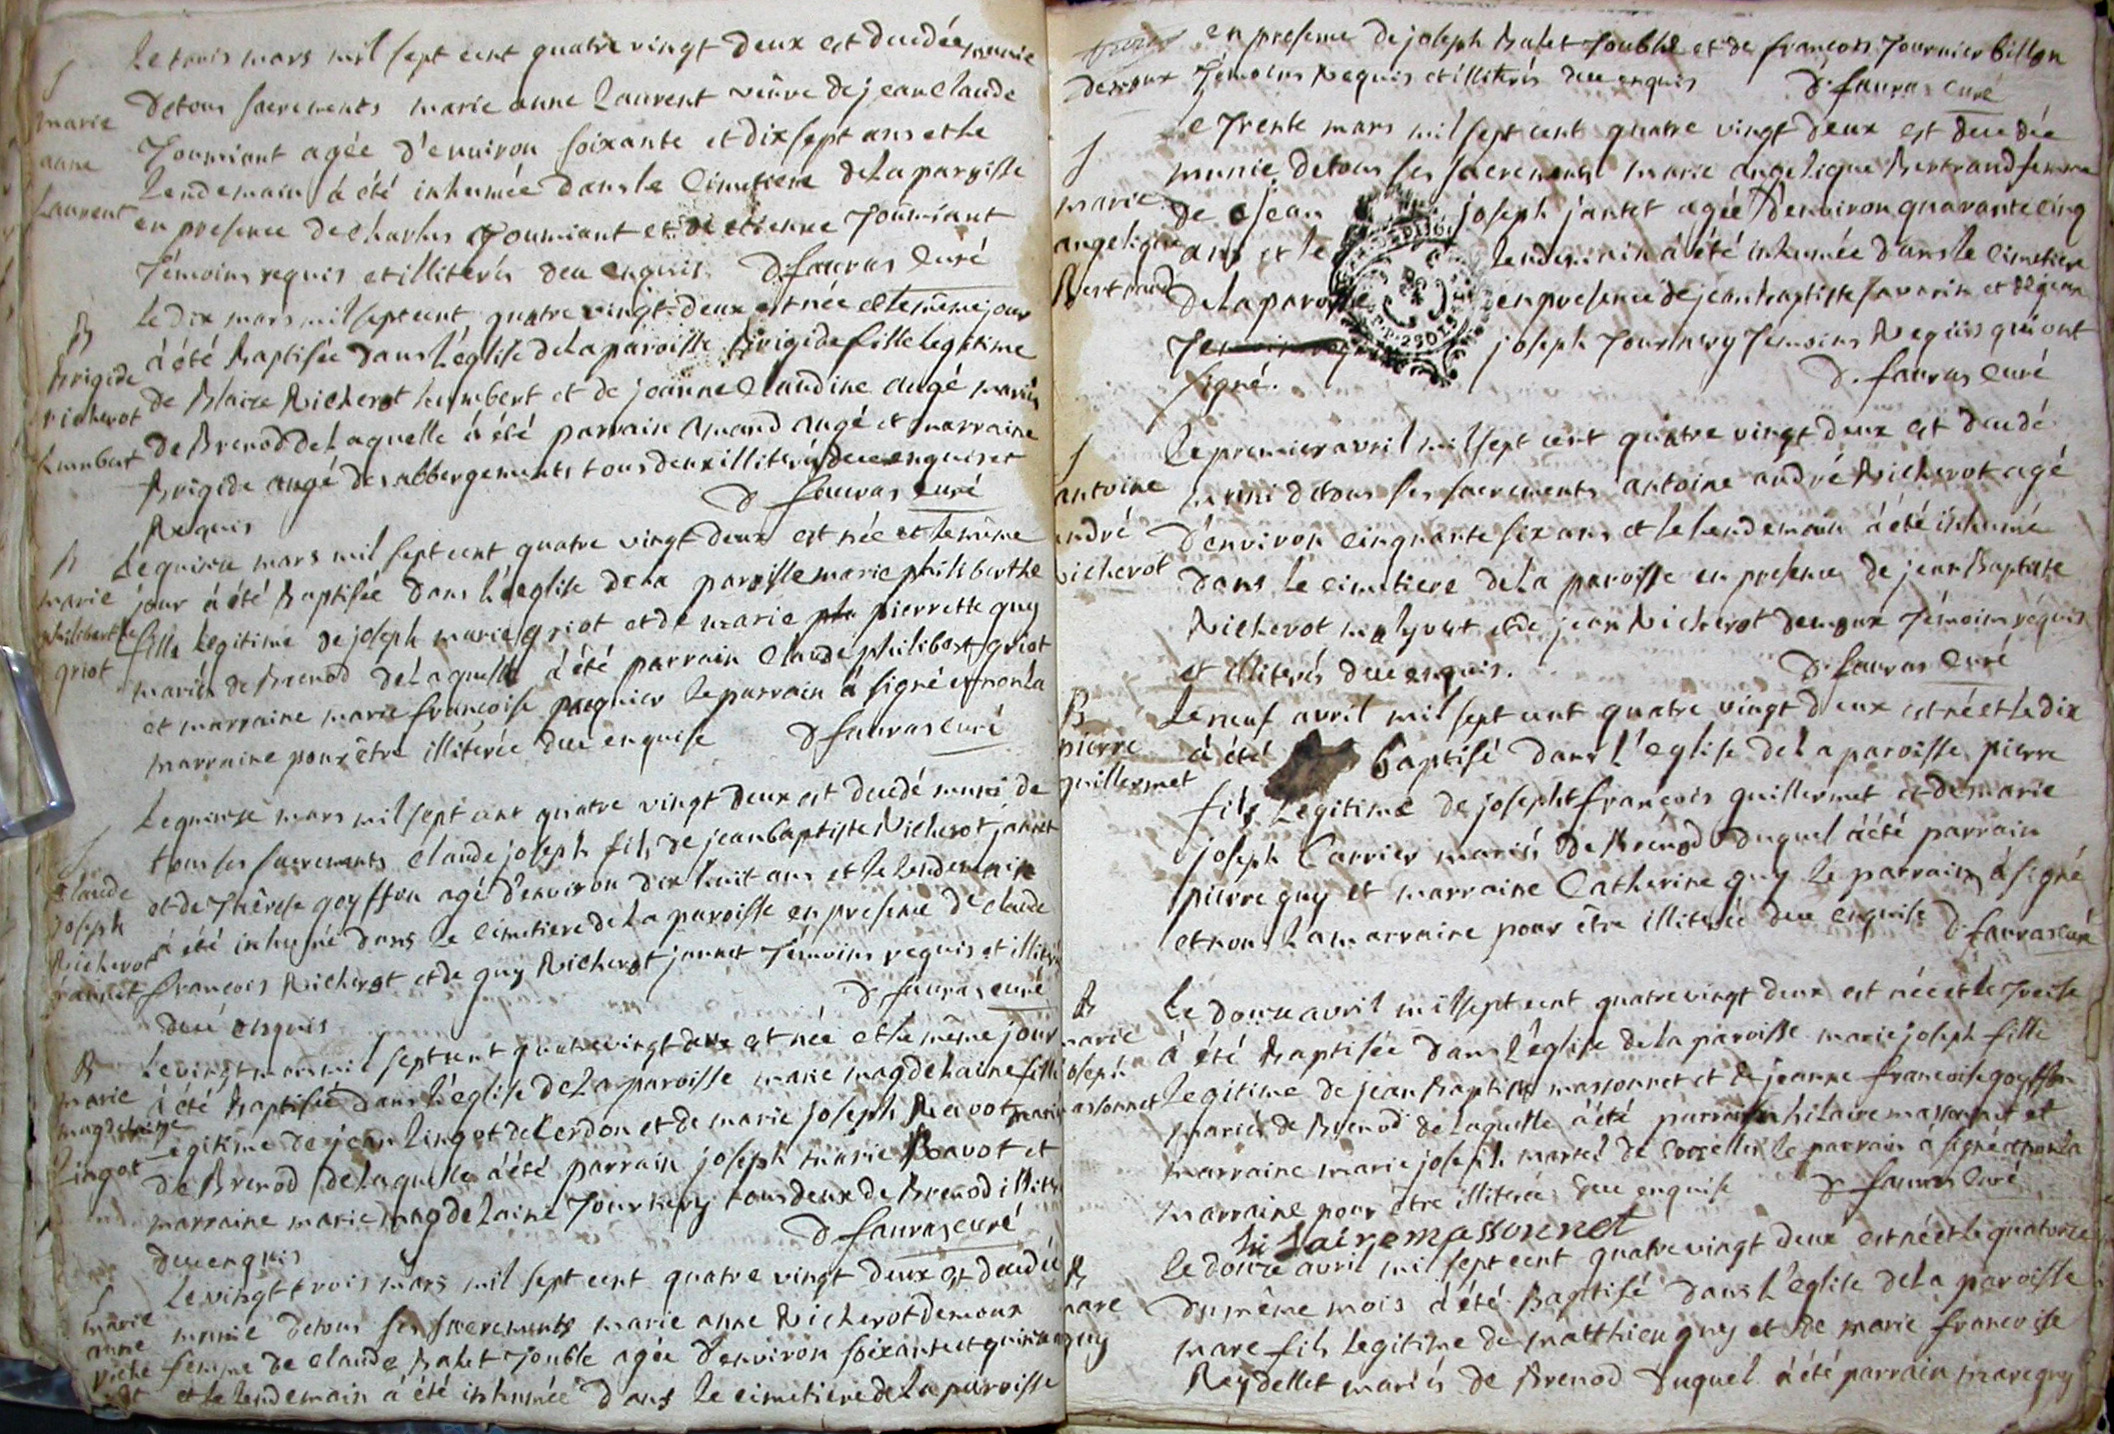 Le trois mars mil sept cent quatre vingt deux est decedée munie
S
marie
anne
Laurent
de tous sacrements marie anne Laurent veuve de jean claude
Joumiant agée d'environ soixante et dix sept ans et le
Lendemain à été inhumée dans le cimetiere de la paroisse
en presence de charles Joumiant et de etienne Joumiant
Témoins requis et illiterés de ce enquis D. fauras curé
B
brigide
richerot
humbert
Le dix mars mil sept cent quatre vingt deux est née et le même jour
à été baptisée dans l'église de la paroisse brigide fille legitime
de Blaize Richerot humbert et de jeanne claudine augé mariés
de Brenod de laquelle à été parrain amand augé et marraine
Brigide augé des abbergements tous deux illiterés de ce enquis et
Requis D fauras curé
B
marie
philiberthe
griot
Le quinze mars mil sept cent quatre vingt deux est née et le même
jour à été Baptisée dans l'église de la paroisse marie philiberthe
fille legitime de joseph marie griot et de marie pierrette guy
mariés de Brenod de laquelle à été parrain claude philibert griot
et marraine marie francoise paquier le parrain à signé et non la
marraine pour être illiterée de ce enquise D fauras curé
S
claude
joseph
Richerot
jannet
Le quinze mars mil sept cent quatre vingt deux est decedé muni de
tous ses sacrements claude joseph fils de jean baptiste Richerot jannet
et de Thérese goyffon agé d'environ dix huit ans et le lendemain
à été inhumé dans le cimetiere de la paroisse en presence de claude
francois Richerot et de guy Richerot jannet Témoins requis et illiterés
de ce enquis D fauras curé
B
marie
magdelaine
Lingot
Le vingt mars mil sept cent quatre vingt deux est née et le même jour
à été Baptisée dans l'église de la paroisse marie magdelaine fille
Legitime de jean Lingot de Cerdon et de marie joseph Ravot mariés
de Brenod de laquelle à été parrain joseph marie Ravot et
marraine marie magdelaine Journery tous deux de Brenod illiterés
de ce enquis D fauras curé
S
marie
anne
riche
rot
Le vingt trois mars mil sept cent quatre vingt deux est decedée
munie de tous ses sacrements marie anne Richerot demoux
femme de claude Balet Jouble agée d'environ soixante et quinze ans
et le lendemain à été inhumée dans le cimetiere de la paroisse
demoux
en presence de joseph Balet Jouble et de francois Journier billon
Témoins Requis et illiterés de ce enquis D. fauras curé
S
marie
angelique
Bertrand
Le Trente mars mil sept cent quatre vingt deux est decedée
munie de tous ses sacrements marie angelique Bertrand femme
de jean joseph jantet agée d'environ quarante cinq
ans et le lendemain à été inhumée dans le cimetiere
de la paroisse en presence de jean baptiste savarin et de jean
joseph Journery Témoins Requis qui ont
signé. D. fauras curé
S
antoine
andré
richerot
Le premier avril mil sept cent quatre vingt deux est decedé
muni de tous ses sacrements antoine andré Richerot agé
d'environ cinquante six ans et le lendemain à été inhumé
dans le cimetiere de la paroisse en presence de jean Baptiste
Richerot et de jean Richerot demoux Témoins requis
et illiterés de ce enquis. D. fauras curé
B
pierre
guillermet
Le neuf avril mil sept cent quatre vingt deux est né et le dix
à été baptisé dans l'eglise de la paroisse pierre
fils Legitime de joseph françois guillermet et de marie
joseph Carrier mariés de Brenod duquel à été parrain
pierre guy et marraine Catherine guy le parrain à signé
et non la marraine pour être illiterée de ce enquise D. fauras curé
B
marie
joseph
massonnet
Le douze avril mil sept cent quatre vingt deux est née et le Treise
à été Baptisée dans l'église de la paroisse marie joseph fille
legitime de jean Baptiste massonnet et de jeanne francoise goyffon
mariés de Brenod de laquelle à été parrain hilaire massonnet et
marraine marie joseph martel de corcelles le parrain à signé et non la
marraine pour être illiterée de ce enquise D fauras curé
hilaire massonnet
B
marc
guy
Le douze avril mil sept cent quatre vingt deux est né et le quatorze
du même mois à été Baptisé dans l'eglise de la paroisse
marc fils legitime de matthieu guy et de marie francoise
Reydellet mariés de Brenod duquel à été parrain marc guy